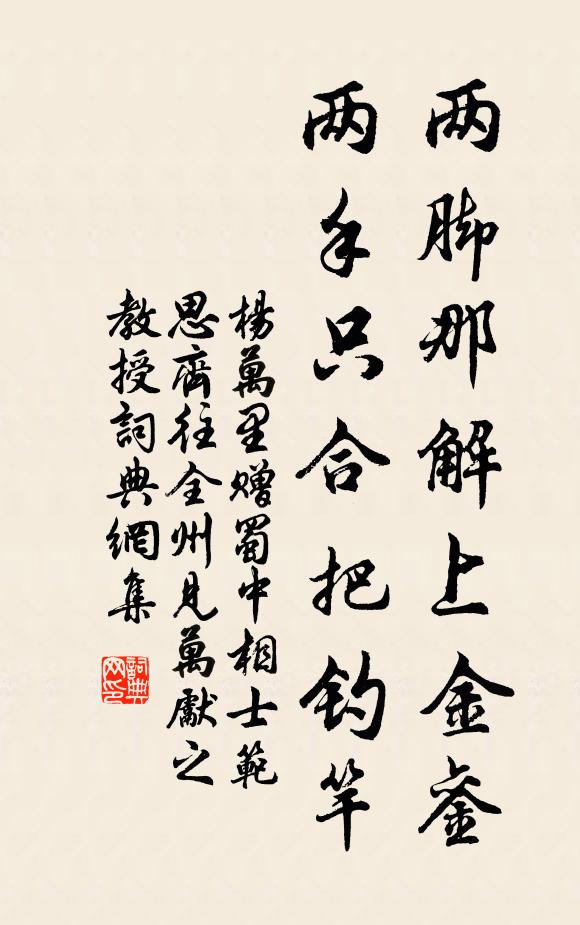 两脚那解上金銮
两手只合把钓竿
楊萬里赠蜀中相士範
思齊往全州見萬獻之
教授詞典網集
詞典
网印